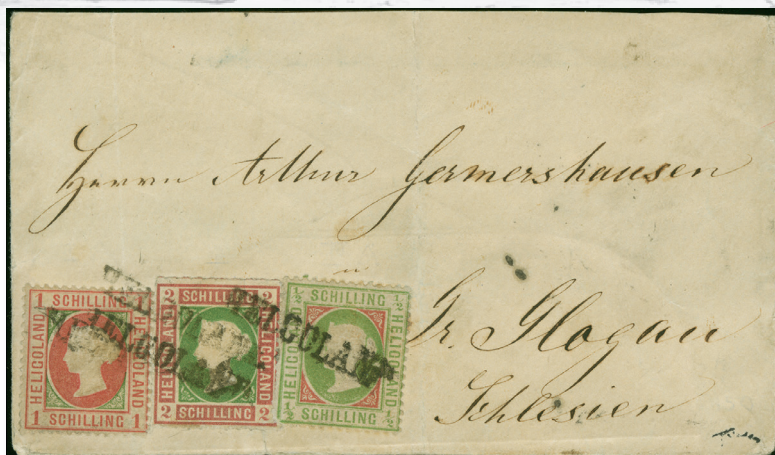 Herrn Arthur Germershausen
Gr. Glogau
Schlesien
1 SCHILLING 1
HELIGOLAND
HELIGOLAND
1 SCHILLING 1
2 SCHILLING 2
HELIGOLAND
HELIGOLAND
2 SCHILLING 2
½ SCHILLING ½
HELIGOLAND
HELIGOLAND
½ SCHILLING ½
HELIGOLAND
HELIGOLAND
HELIGOLAND